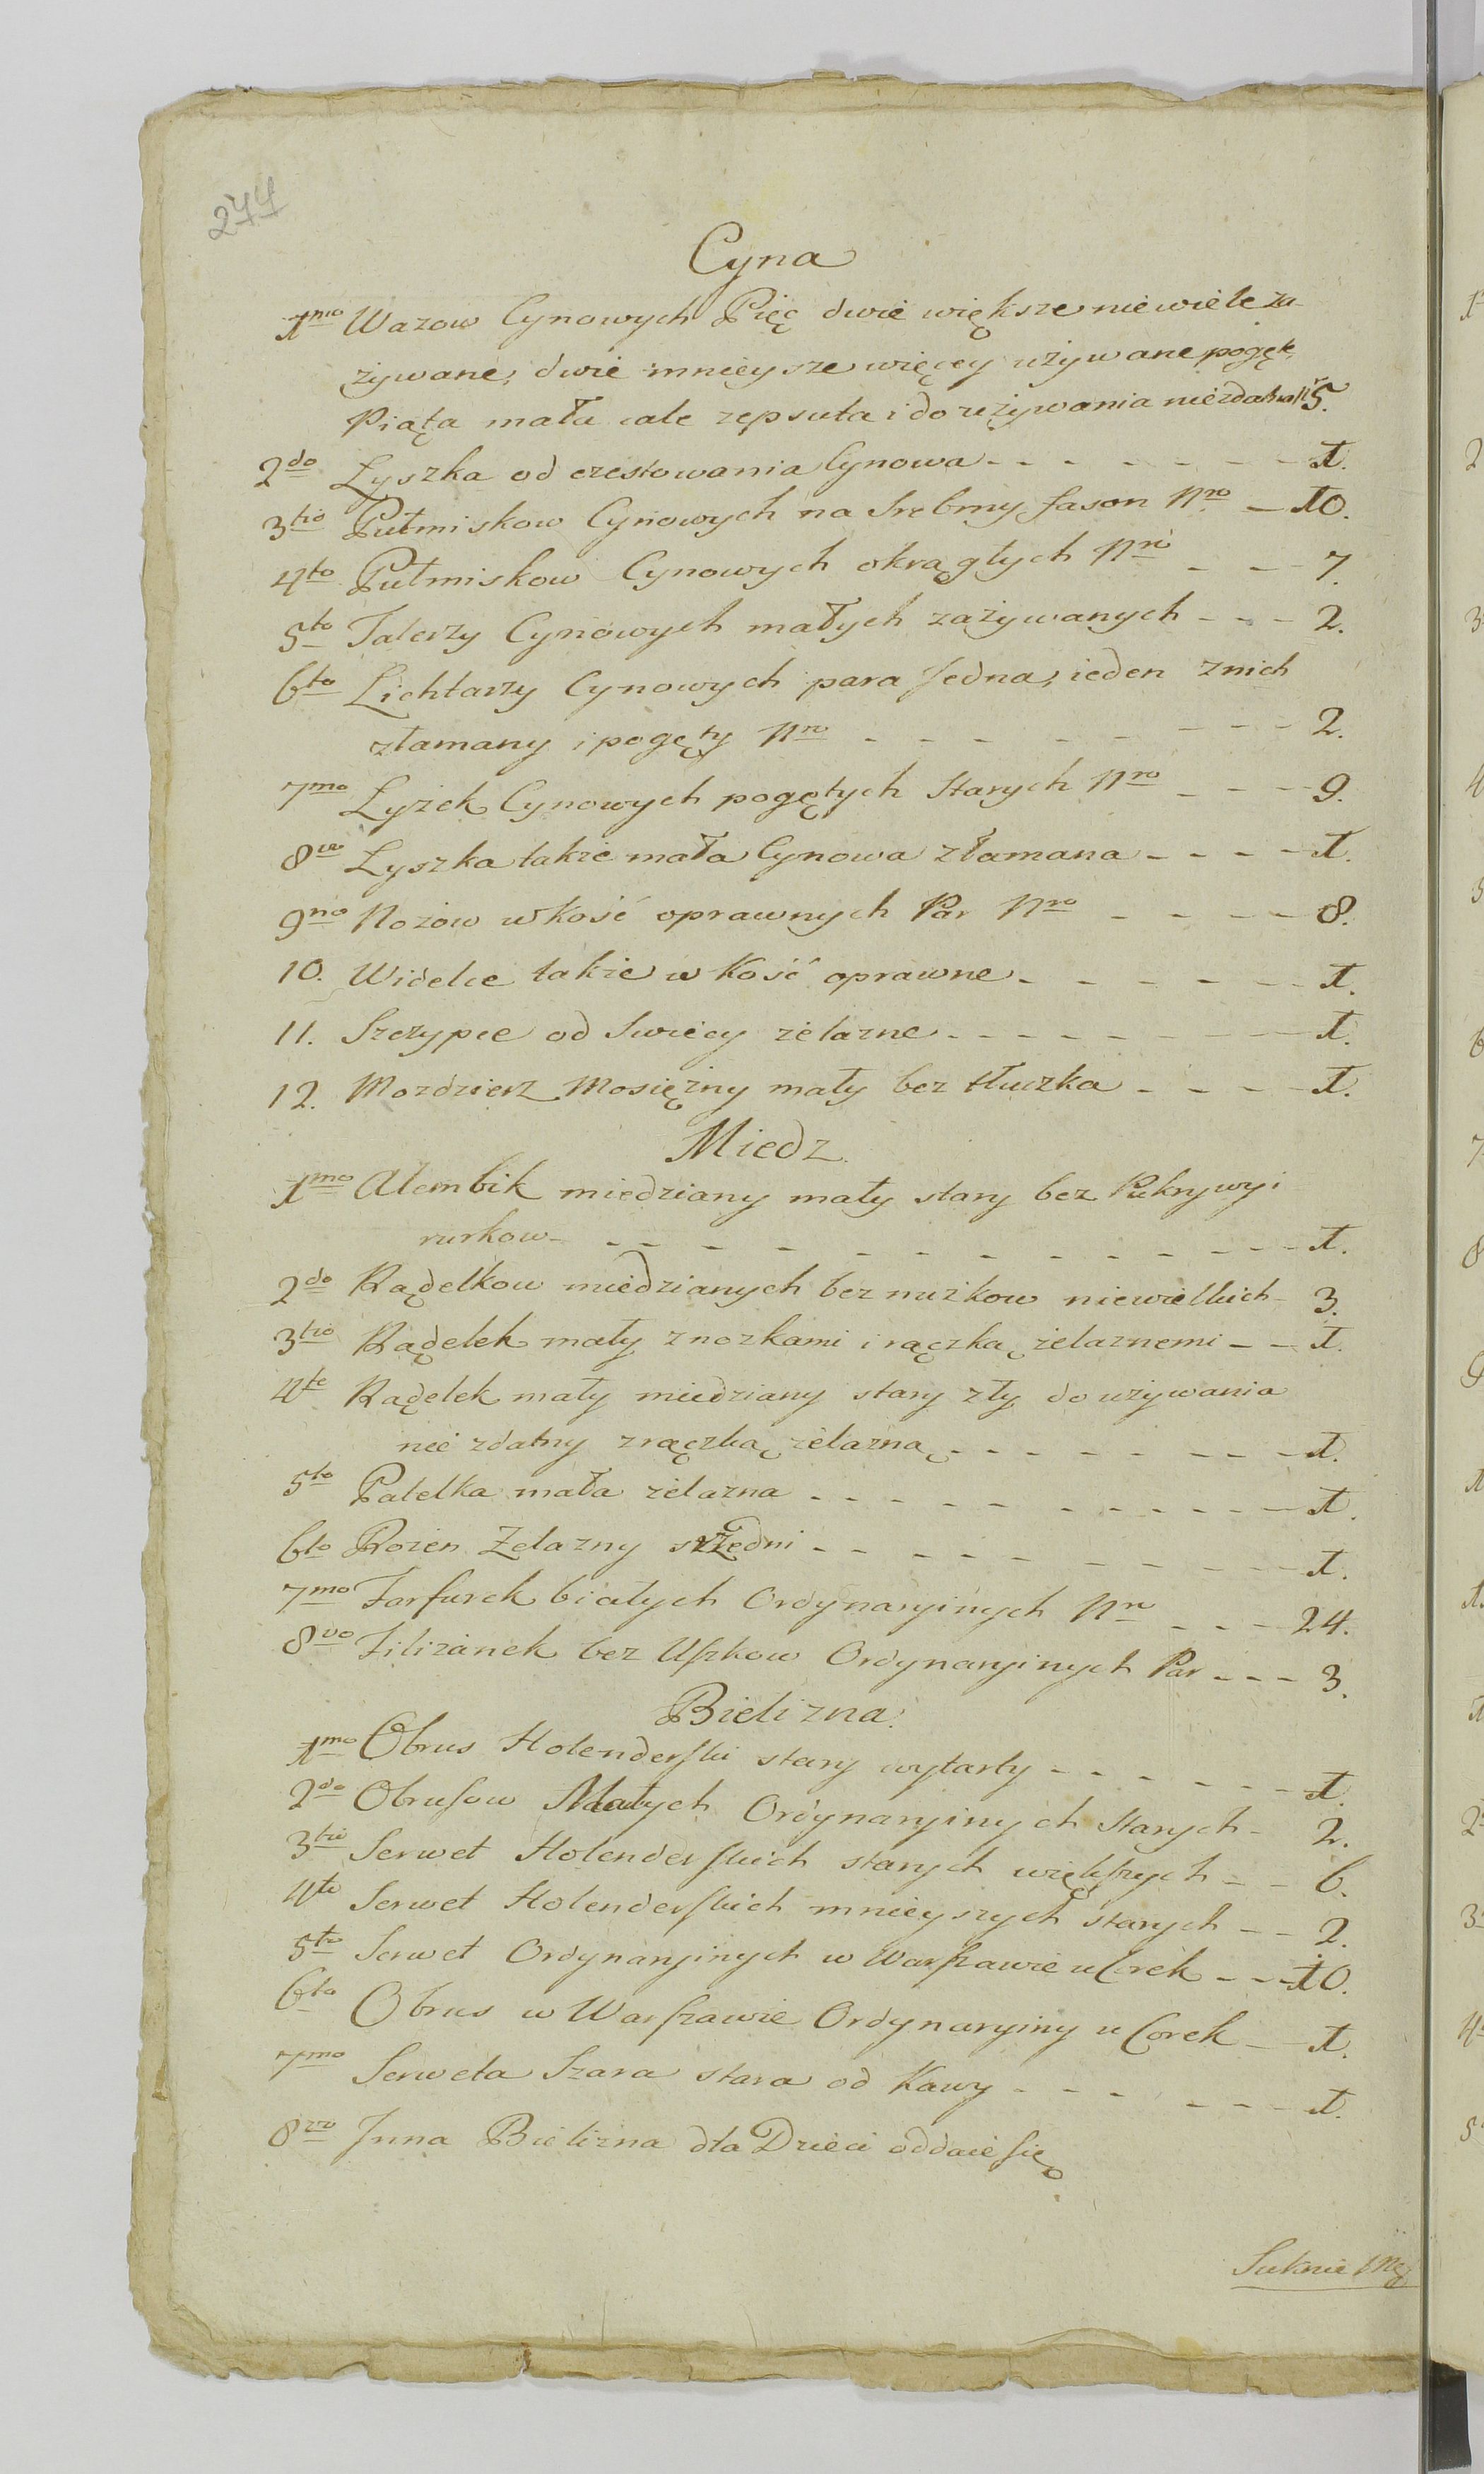 244
Cyna
1mo Wazow Cynowych Pięc dwie większe nie wiele za
żywane, dwie mnieysze więcey używane pogęte
Piąta mała cale zepsuta i do używania niezdatna 5.
2do Łyszka od czestowania Cynowa - - - - - - - 1.
3tio Pułmiskow Cynowych na Srebrny fason Nro - 10.
4to Pułmiskow Cynowych okrągłych Nro - - - 7.
5to Talerzy Cynowych małych zażywanych - - - 2.
6to Lichtarzy Cynowych para Jedna, ieden z nich
złamany i pogęty Nro - - - - - - - - 2.
7mo Łyżek Cynowych pogętych Starych Nro - - - 9.
8vo Łyszka także mała Cynowa złamana - - - - 1.
9no Nożow w kość oprawnych Par Nro - - - - 8.
10. Widelce także w Kość oprawne - - - - - - 1.
11. Szczypce od Swiecy żelazne - - - - - - - - 1.
12. Mozdzierz Mosiężny mały bez tłuczka - - - - 1.
Miedz
1mo Alembik miedziany mały stary bez Pukrywy i
rurkow - - - - - - - - - - - - 1.
2do Rądelkow miedzianych bez nużkow niewielkich - 3.
3tio Rądelek mały z nozkami i rączką żelaznemi - - 1.
4to Rądelek mały miedziany stary zły do używania
nie zdatny z rączką żelazną - - - - - - - - 1.
5to Patelka mała żelazna - - - - - - - - - - 1.
6to Rożen Żelazny srzedni - - - - - - - - - 1.
7mo Farfurek białych Ordynaryinych Nro - - - 24.
8vo Filiżanek bez Uszkow Ordynaryinych Par - - - 3.
Bielizna
1mo Obrus Holenderski stary wytarty - - - - - - 1.
2do Obrusow Małych Ordynaryinych Starych - 2.
3tio Serwet Holenderskich starych większych - - 6.
4to Serwet Holenderskich mnieyszych starych - - 2.
5to Serwet Ordynaryinych w Warszawie u Corek - - 10.
6to Obrus w Warszawie Ordynaryiny u Corek - 1.
7mo Serweta Szara stara od Kawy - - - - - - 1.
8vo Inna Bielizna dla Dzieci oddaie się
Suknie